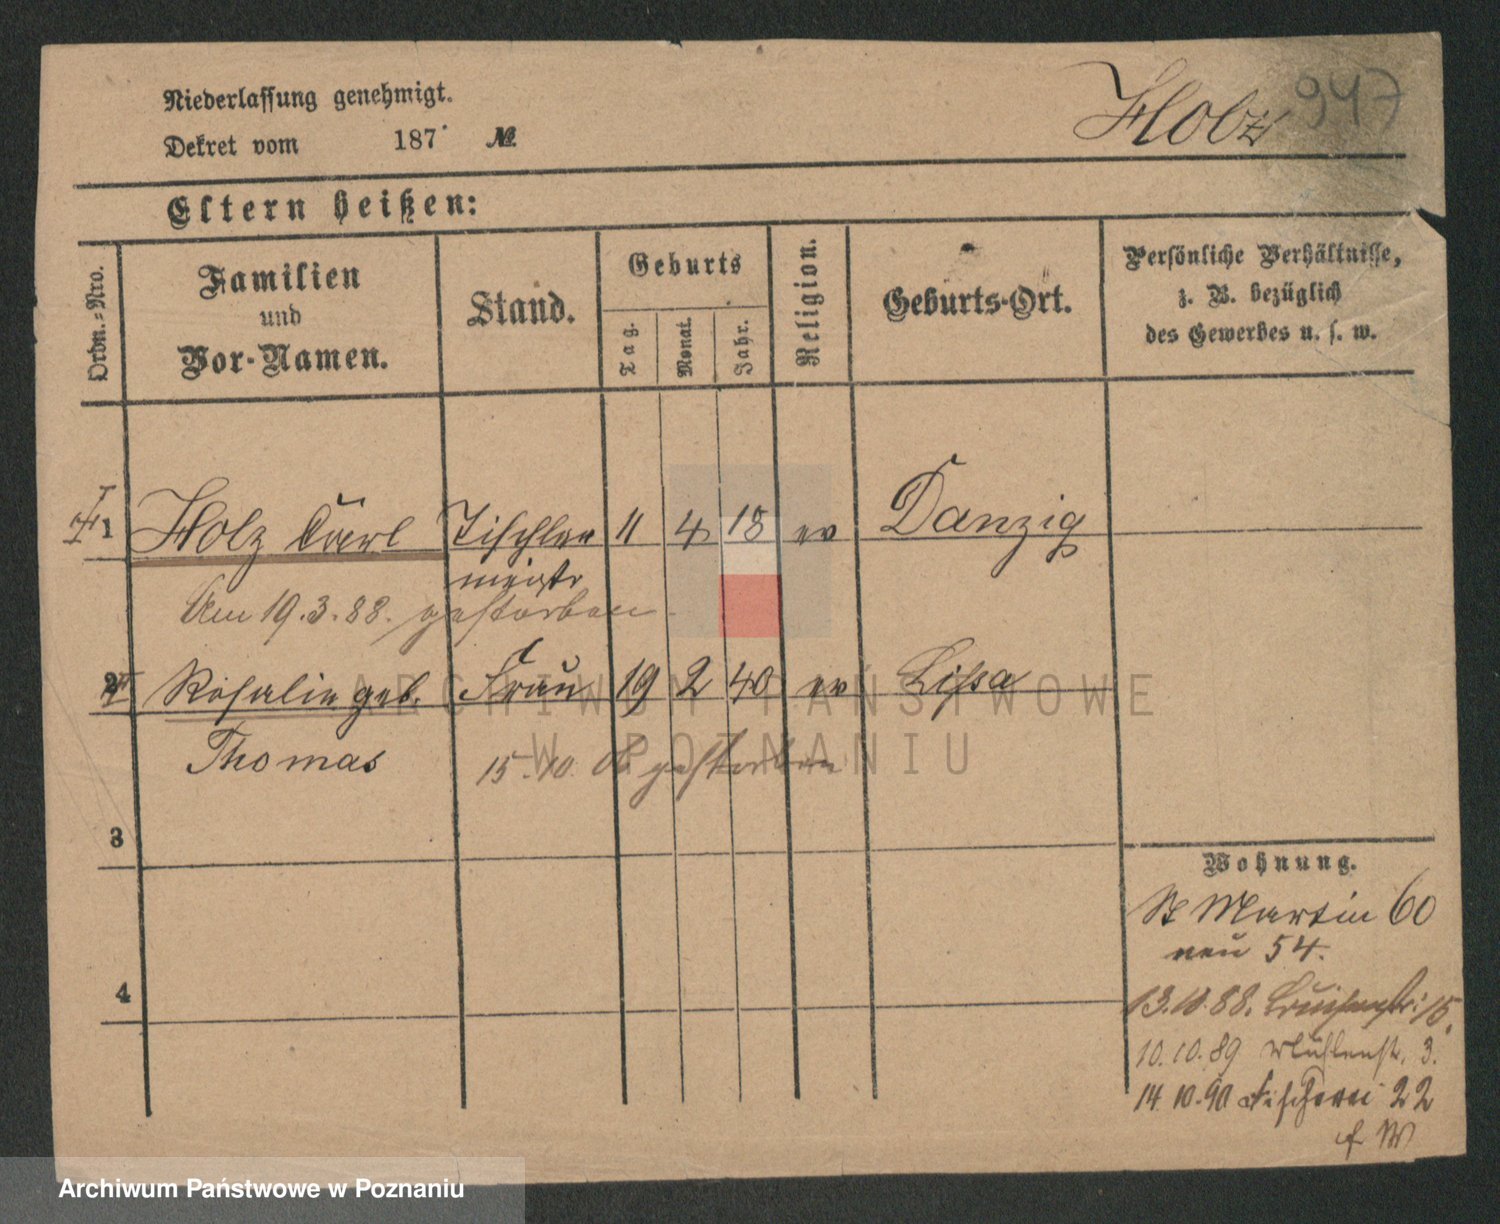 Niederlassung genehmigt.
Dekret vom 187 №
Holz 947
Eltern heißen:
Ordn.-Nro.
Familien
und
Vor-Namen.
Stand.
Geburts
Tag.
Monat.
Jahr.
Religion.
Geburts-Ort.
Persönliche Verhältnisse,
z. B. bezüglich
des Gewerbes u. s. w.
1 Holz Carl Tischler 11 4 18 ev Danzig
meistr
Am 19.3.88. gestorben
2 Rosalie geb. Frau 19 2 40 ev Lissa
Thomas 15. 10. gestorben
3
4
Wohnung.
St Martin 60
neu 54.
13.10.88. Louisenstr: 15.
10.10.89 Mühlenstr. 3.
14.10.90 Fischerei 22
ARCHIWUM PAŃSTWOWE
W POZNANIU
Archiwum Państwowe w Poznaniu